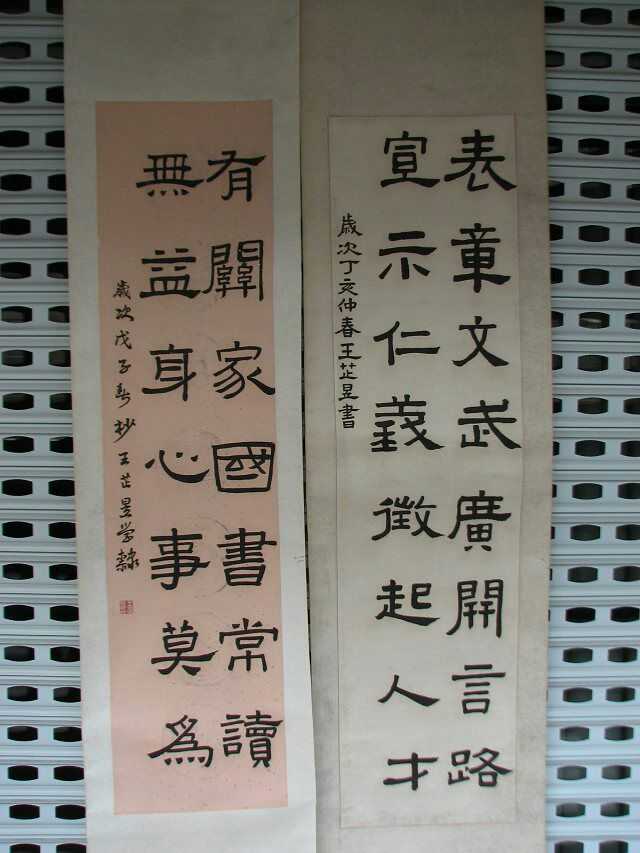 表章文武廣開言路
宣示仁義徵起人才
歲次丁亥仲春王芷昱書
有關家國書常讀
無益身心事莫為
歲次戊子春抄王芷昱學隸